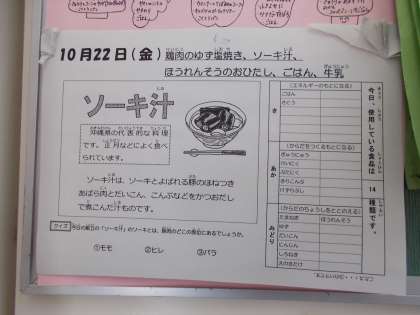 10月22日(金) 鶏肉のゆず塩焼き、ソーキ汁、
ほうれんそうのおひたし、ごはん、牛乳
ソーキ汁
沖縄県の代表的な料理
です。正月などによく食べ
られています。
ソーキ汁は、ソーキとよばれる豚のほねつき
あばら肉とだいこん、こんぶなどをかつおだし
で煮こんだ汁ものです。
クイズ 今日の献立の「ソーキ汁」のソーキとは、豚肉のどこの部位にあるでしょうか。
①モモ ②ヒレ ③バラ
今日、使用している食品は 14 種類です。
き
(エネルギーのもとになる)
ごはん
さとう
あか
(からだをつくるもとになる)
ぎゅうにゅう
とりにく
ぶたにく
きりこんぶ
けずりぶし
みどり
(からだのちょうしをととのえる)
たまねぎ ほうれんそう
ゆず
だいこん
にんじん
しろねぎ
えのきたけ